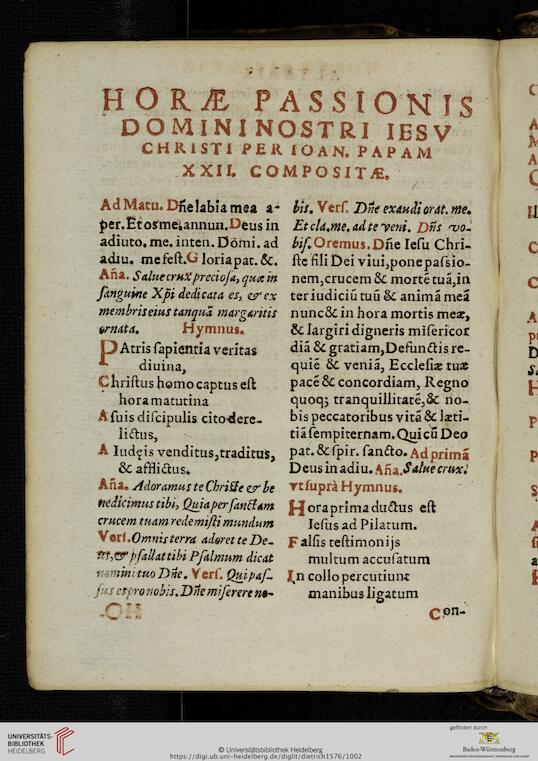 HORÆ PASSIONIS
DOMINI NOSTRI IESV
CHRISTI PER IOAN. PAPAM
XXII. COMPOSITÆ.
Ad Matu. Dñe labia mea a-
per. Et os mei annun. Deus in
adiuto. me. inten. Dōmi. ad
adiu. me fest. Gloria pat. &.
Aña. Salue crux preciosa, quæ in
sanguine Xp̃i dedicata es, & ex
membris eius tanquā margaritis
ornata. Hymnus.
PAtris sapientia veritas
diuina,
Christus homo captus est
hora matutina
A suis discipulis cito dere-
lictus,
A Iudęis venditus, traditus,
& afflictus.
Aña. Adoramus te Christe & be
nedicimus tibi, Quia per sanctam
crucem tuam redemisti mundum
Vers. Omnis terra adoret te De-
us, & psallat tibi Psalmum dicat
nomini tuo Dñe. Vers. Qui pas-
sus es pro nobis. Dñe miserere no-
bis. Vers. Dñe exaudi orat. me.
Et cla. me. ad te veni. Dñs vo-
bis. Oremus. Dñe Iesu Chri-
ste fili Dei viui, pone passio-
nem, crucem & mortē tuā, in
ter iudiciū tuū & animā meā
nunc & in hora mortis meæ,
& largiri digneris misericor
diā & gratiam, Defunctis re-
quiē & veniā, Ecclesiæ tuæ
pacē & concordiam, Regno
quoq; tranquillitatē, & no-
bis peccatoribus vitā & læti-
tiā sempiternam. Qui cū Deo
pat. & spir. sancto. Ad primā
Deus in adiu. Aña. Salue crux.
vt suprà Hymnus.
Hora prima ductus est
Iesus ad Pilatum.
Falsis testimonijs
multum accusatum
In collo percutiunt
manibus ligatum
Con-
UNIVERSITÄTS-
BIBLIOTHEK
HEIDELBERG
© Universitätsbibliothek Heidelberg
https://digi.ub.uni-heidelberg.de/diglit/dietrich1576/1002
gefördert durch
Baden-Württemberg